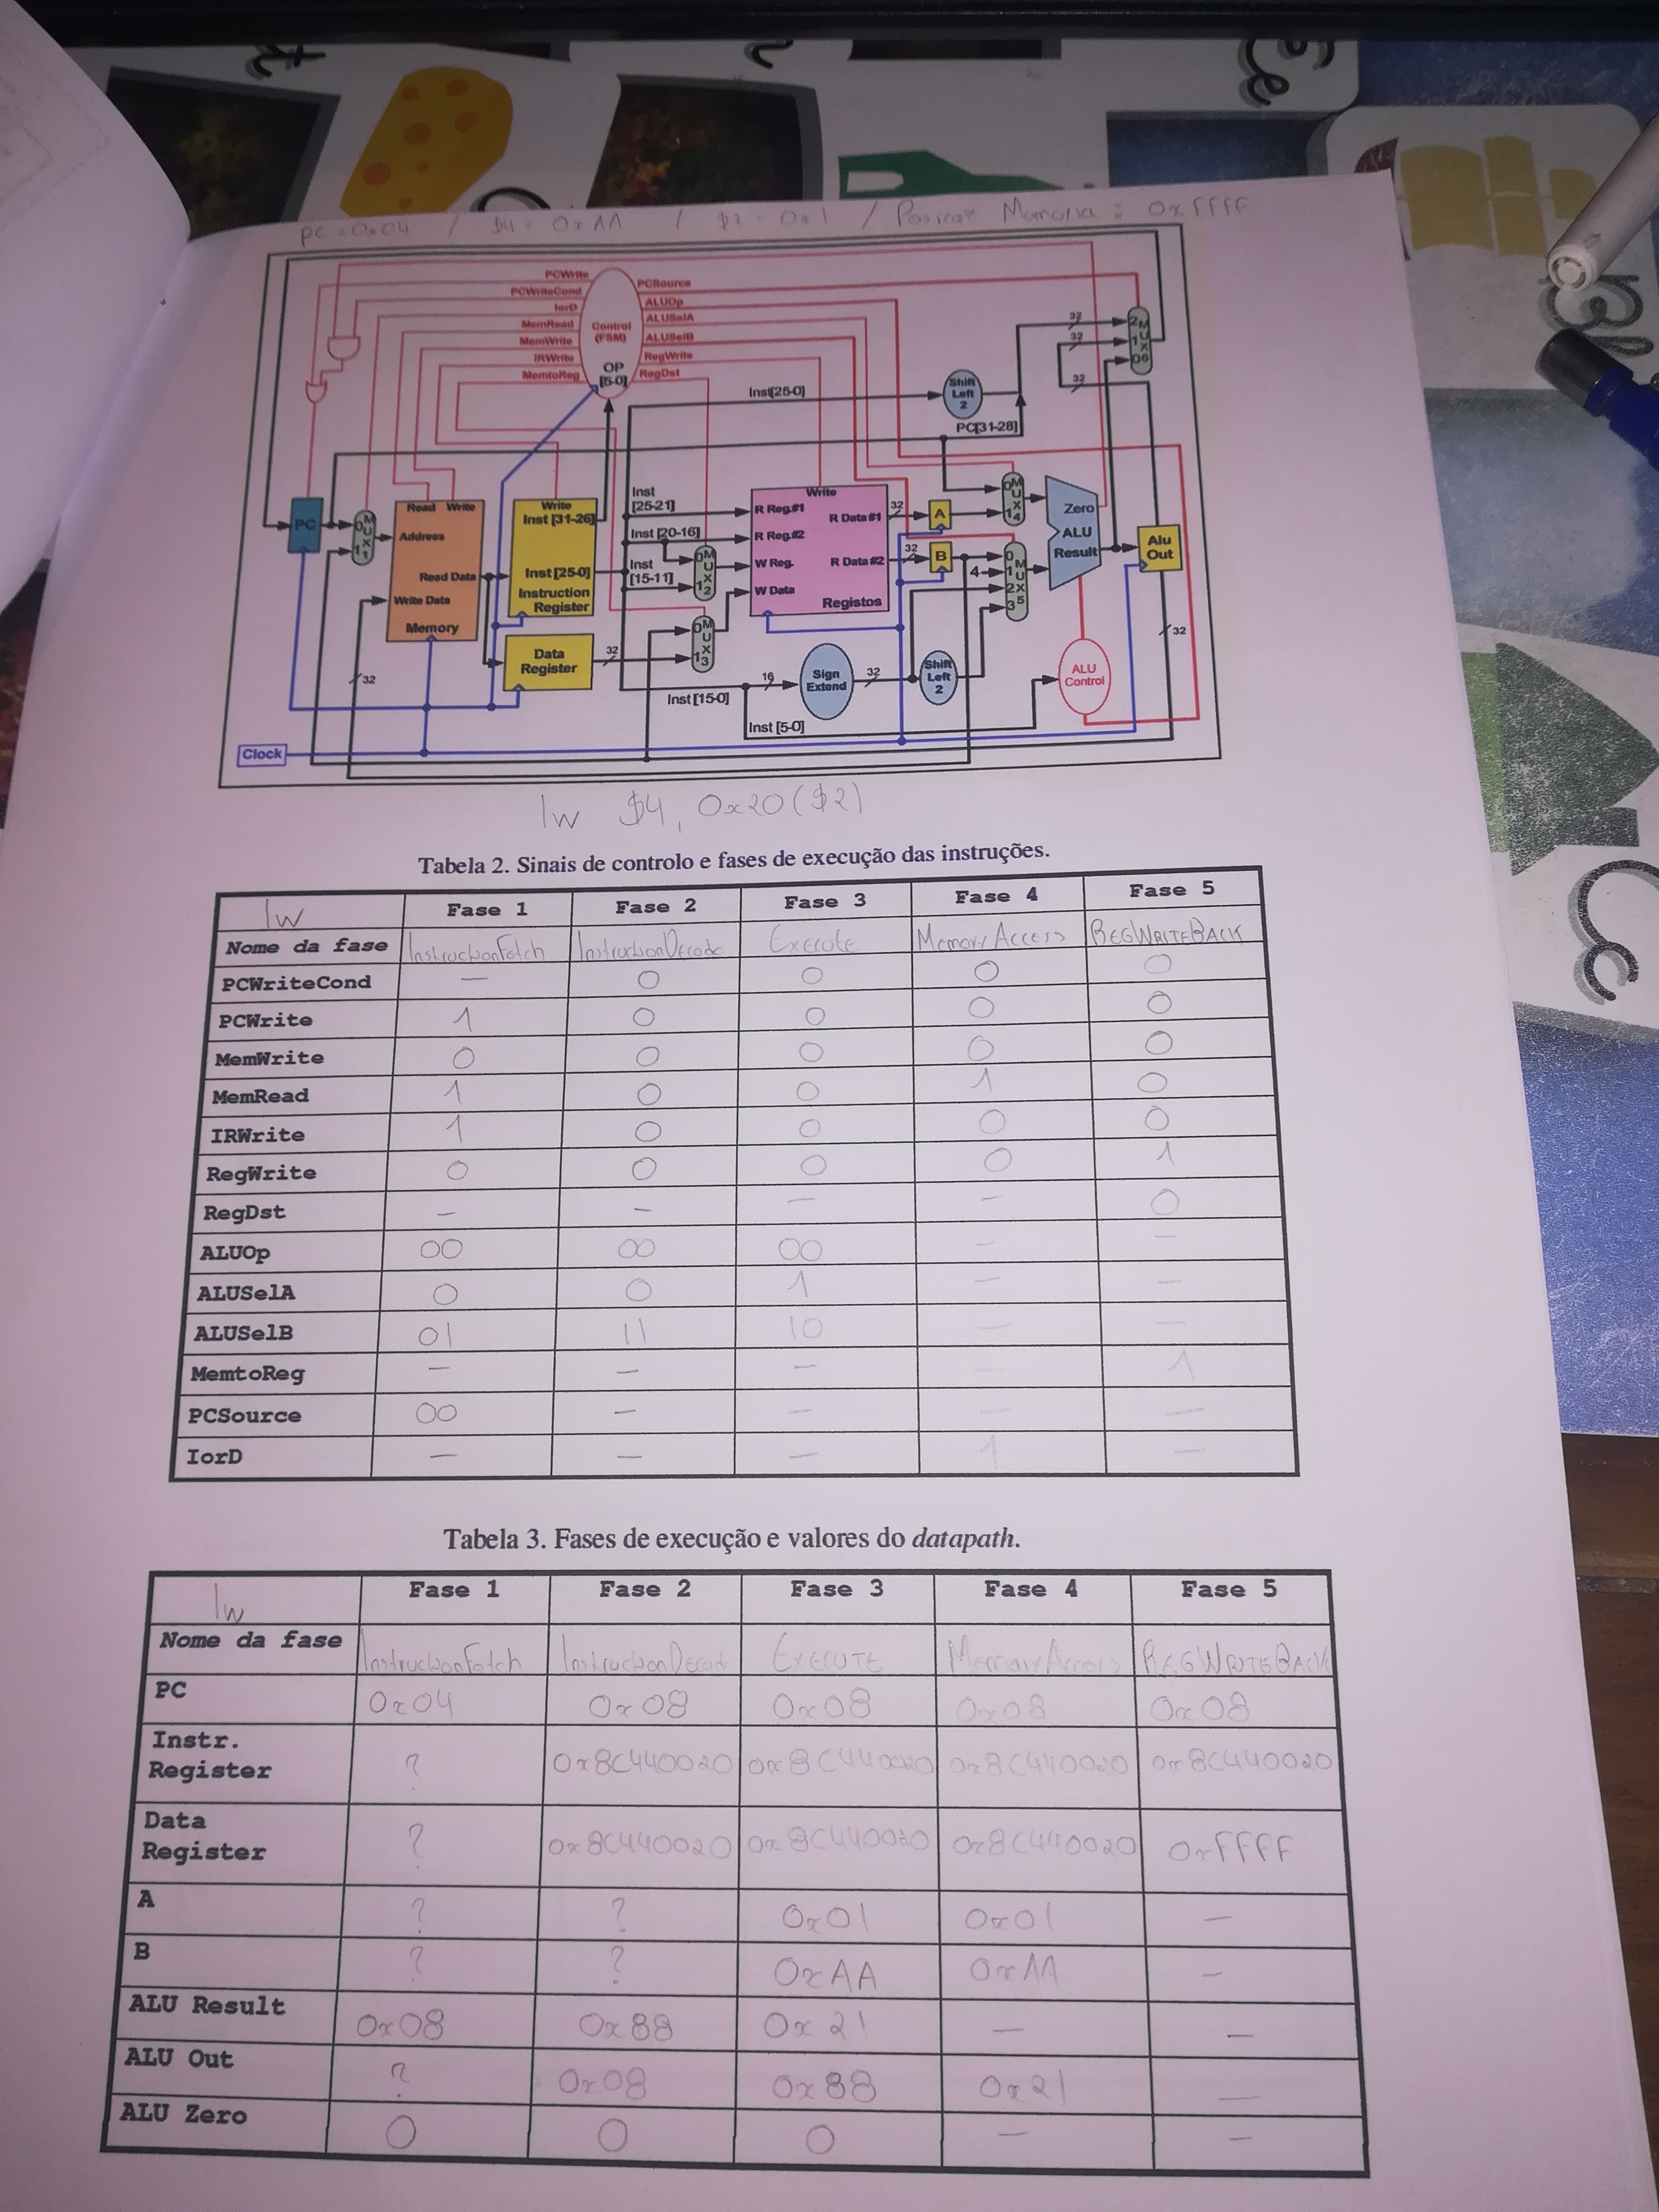 PC = 0x04 / $4 = 0xAA / $2 = 0x1 / Posicao Memoria = 0xFFFF
PCWrite
PCWriteCond
IorD
MemRead
MemWrite
IRWrite
MemtoReg
Control
(FSM)
OP
[5-0]
PCSource
ALUOp
ALUSelA
ALUSelB
RegWrite
RegDst
Inst[25-0]
Shift
Left
2
PC[31-28]
32
32
32
2 M
1 U
X
0 6
PC
0 M
U
X
1 1
Read Write
Address
Read Data
Write Data
Memory
Write
Inst [31-26]
Inst [25-0]
Instruction
Register
Data
Register
32
Inst
[25-21]
Inst [20-16]
Inst
[15-11]
0 M
U
X
1 2
0 M
U
X
1 3
Write
R Reg.#1
R Reg.#2
W Reg.
W Data
R Data#1
R Data#2
Registos
32
32
A
B
4
0 M
U
X
1 4
0
1 M
U
2 X
3 5
Zero
ALU
Result
Alu
Out
32
32
Inst [15-0]
16
Sign
Extend
32
Shift
Left
2
ALU
Control
Inst [5-0]
Clock
lw $4, 0x20($2)
Tabela 2. Sinais de controlo e fases de execução das instruções.
lw Fase 1 Fase 2 Fase 3 Fase 4 Fase 5
Nome da fase InstructionFetch InstructionDecode Execute MemoryAccess REGWRITEBACK
PCWriteCond — 0 0 0 0
PCWrite 1 0 0 0 0
MemWrite 0 0 0 0 0
MemRead 1 0 0 1 0
IRWrite 1 0 0 0 0
RegWrite 0 0 0 0 1
RegDst — — — — 0
ALUOp 00 00 00 — —
ALUSelA 0 0 1 — —
ALUSelB 01 11 10 — —
MemtoReg — — — — 1
PCSource 00 — — — —
IorD — — — 1 —
Tabela 3. Fases de execução e valores do datapath.
lw Fase 1 Fase 2 Fase 3 Fase 4 Fase 5
Nome da fase InstructionFetch InstructionDecod EXECUTE MemoryAccess REGWRITEBACK
PC 0x04 0x08 0x08 0x08 0x08
Instr.
Register ? 0x8C440020 0x8C440020 0x8C440020 0x8C440020
Data
Register ? 0x8C440020 0x8C440020 0x8C440020 0xFFFF
A ? ? 0x01 0x01 —
B ? ? 0xAA 0xAA —
ALU Result 0x08 0x88 0x21 — —
ALU Out ? 0x08 0x88 0x21 —
ALU Zero 0 0 0 — —